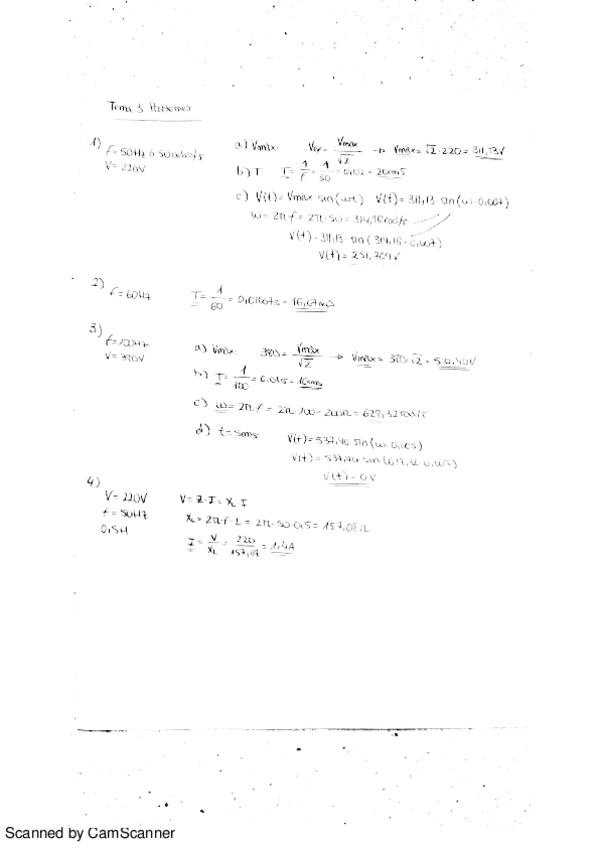 Tema 3 Problemes
1) f = 50Hz ó 50 ciclos/s
V = 220V
a) Vmàx: Vef = Vmàx/√2 → Vmàx = √2 · 220 = 311,13V
b) T T = 1/f = 1/50 = 0,02 = 20ms
c) V(t) = Vmàx sin(wt) V(t) = 311,13 sin(w · 0,007)
w = 2π · f = 2π · 50 = 314,16 rad/s
V(t) = 311,13 · sin(314,16 · 0,007)
V(t) = 251,709V
2) f = 60Hz T = 1/60 = 0,01667s = 16,67ms
3) f = 100Hz
V = 380V
a) Vmàx: 380 = Vmàx/√2 → Vmàx = 380 · √2 = 537,40V
b) T = 1/100 = = 10ms
c) w = 2π · f = 2π · 100 = 200π = rad/s
d) t = 5ms V(t) = 537,40 sin(w · 0,005)
V(t) = 537,40 sin( 0,005)
V(t) = 0V
4) V = 220V
f = 50Hz
0,5H
V = Z · I = XL I
XL = 2π · f · L = 2π · 50 · 0,5 = 157,08
I = V/XL = 220/157,08 = 1,4A
Scanned by CamScanner